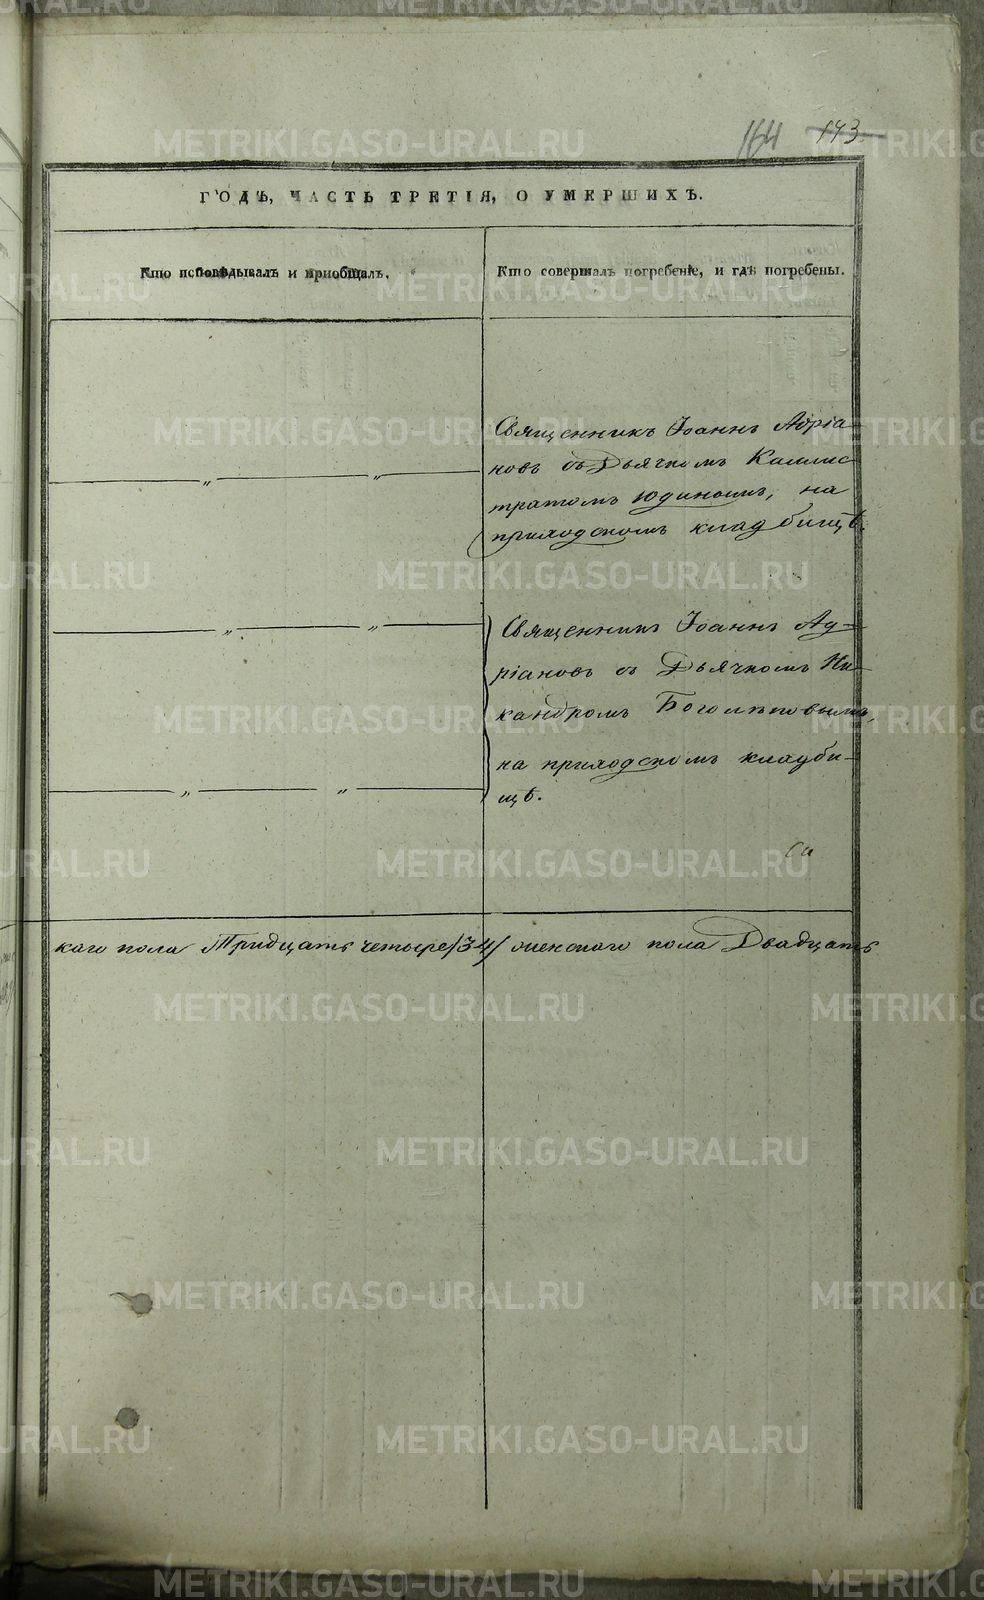 164 143
ГОДЪ, ЧАСТЬ ТРЕТІЯ, О УМЕРШИХЪ.
Кто исповѣдывалъ и пріобщалъ.
Кто совершалъ погребеніе, и гдѣ погребены.
Священникъ Іоаннъ Адріа-
новъ съ Дьячкомъ Каллис
тратомъ Юдинымъ, на
приходскомъ кладбищѣ.
Священникъ Іоаннъ Ад-
ріановъ съ Дьячкомъ Ни-
кандромъ Боголѣповымъ,
на приходскомъ кладби-
щѣ.
каго пола Тридцать четыре /34/ женскаго пола Двадцать
METRIKI.GASO-URAL.RU